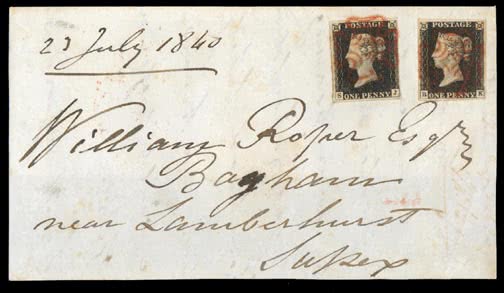 23 July 1840
POSTAGE POSTAGE
S ONE PENNY J ONE PENNY K
William Roper Esqr
Bayham
near Lamberhurst
Sussex